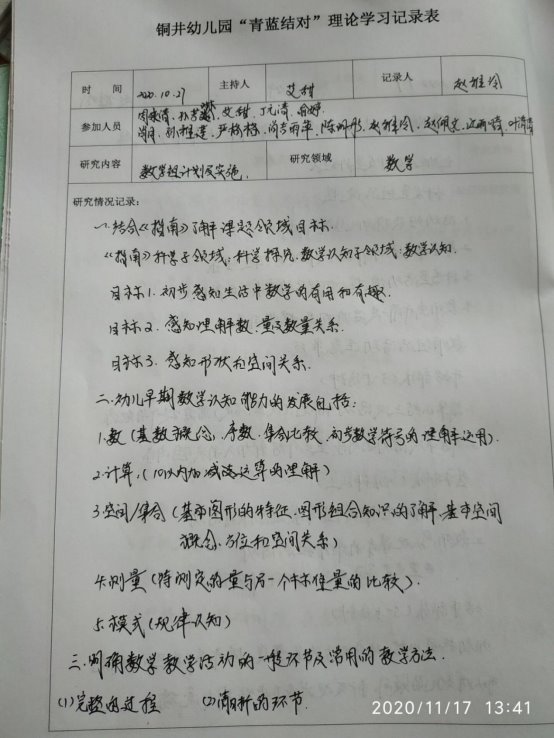 铜井幼儿园“青蓝结对”理论学习记录表
时 间 2020.10.27 主持人 艾甜 记录人
参加人员
艾甜
研究内容 数学组计划及实施. 研究领域 数学
研究情况记录:
一.结合《指南》了解课题领域目标.
《指南》科学子领域:科学探究.数学认知子领域:数学认知.
目标1.初步感知生活中数学的有用和有趣.
目标2.感知理解数.量及数量关系.
目标3.感知形状和空间关系.
二.幼儿早期数学认知能力的发展包括:
1.数(基数概念,序数.集合比较.初步数学符号的理解运用).
2.计算,(10以内加减法运算的理解)
3.空间/集合(基本图形的特征.图形组合知识的了解.基本空间
概念.方位和空间关系)
4.测量(待测定的量与另一个标准量的比较).
5.模式(规律认知)
三.明确数学教学活动的一般环节及常用的教学方法.
(1)完整的过程 (2)清晰的环节.
2020/11/17 13:41